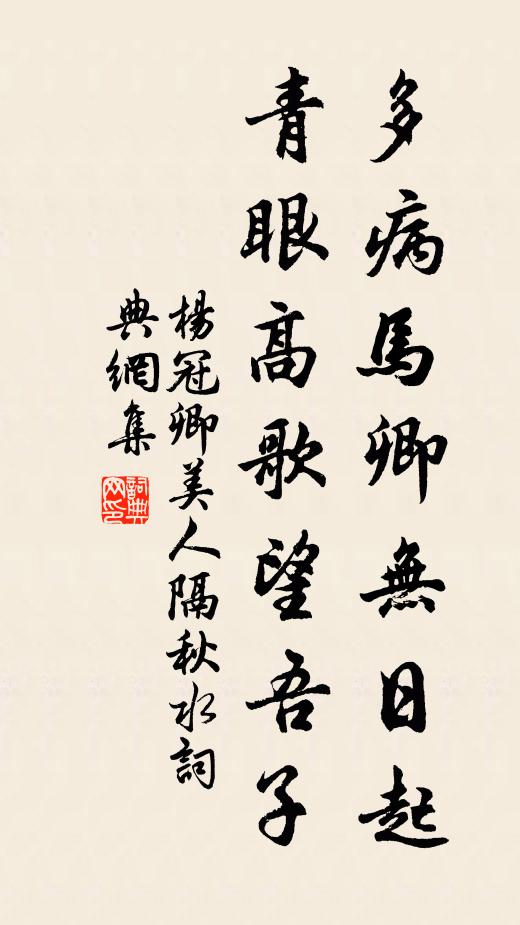 多病馬卿無日起
青眼高歌望吾子
楊冠卿美人隔秋水詞
典網集
詞典
网印